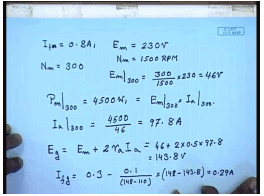 I_fm = 0.8A, E_m = 230V
N_m = 300 N_m = 1500 RPM
E_m|300 = 300/1500 × 230 = 46V
P_m|300 = 4500W, = E_m|300 · I_a|300.
I_a|300 = 4500/46 = 97.8A
E_g = E_m + 2 r_a I_a = 46 + 2×0.5×97.8
= 143.8V
I_fg = 0.3 - 0.1/(148-110) × (148-143.8) = 0.29A